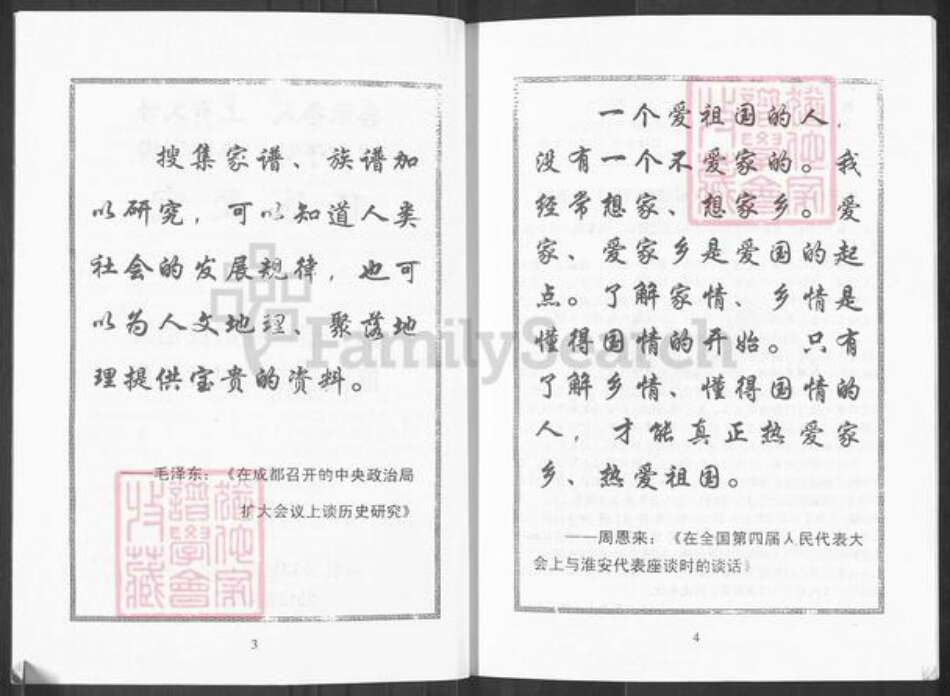 搜集家谱、族谱加
以研究，可以知道人类
社会的发展规律，也可
以为人文地理、聚落地
理提供宝贵的资料。
——毛泽东：《在成都召开的中央政治局
扩大会议上谈历史研究》
3
一个爱祖国的人，
没有一个不爱家的。我
经常想家、想家乡。爱
家、爱家乡是爱国的起
点。了解家情、乡情是
懂得国情的开始。只有
了解乡情、懂得国情的
人，才能真正热爱家
乡、热爱祖国。
——周恩来：《在全国第四届人民代表大
会上与淮安代表座谈时的谈话》
4
FamilySearch